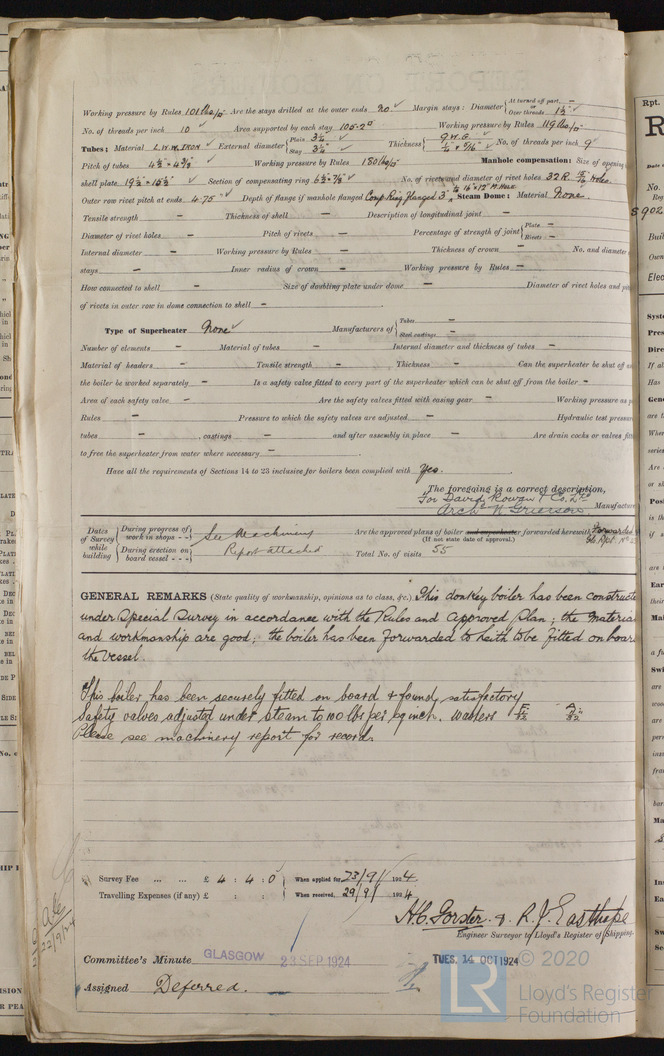 Working pressure by Rules 101 lbs/□" Are the stays drilled at the outer ends no. Margin stays: Diameter { At turned off part, – or Over threads 1½"
No. of threads per inch 10 Area supported by each stay 105.2□" Working pressure by Rules 119 lbs/□"
Tubes: Material L.W.W. IRON External diameter { Plain 3¼" Stay 3¼" Thickness { 9 W.G. ¼" & 5/16" No. of threads per inch 9
Pitch of tubes 4½" × 4⅜" Working pressure by Rules 180 lbs/□" Manhole compensation: Size of opening
shell plate 19½" × 15½" Section of compensating ring No. of rivets and diameter of rivet holes 32 R Holes.
Outer row rivet pitch at ends 4.75" Depth of flange if manhole flanged Comp Ring Flanged 3" 16" × 12" M. Hole Steam Dome: Material None.
Tensile strength – Thickness of shell – Description of longitudinal joint –
Diameter of rivet holes – Pitch of rivets – Percentage of strength of joint { Plate – Rivets –
Internal diameter – Working pressure by Rules – Thickness of crown – No. and diameter
stays – Inner radius of crown – Working pressure by Rules –
How connected to shell – Size of doubling plate under dome – Diameter of rivet holes and
of rivets in outer row in dome connection to shell –
Type of Superheater None Manufacturers of { Tubes – Steel castings –
Number of elements – Material of tubes – Internal diameter and thickness of tubes –
Material of headers – Tensile strength – Thickness – Can the superheater be shut off
the boiler be worked separately – Is a safety valve fitted to every part of the superheater which can be shut off from the boiler –
Area of each safety valve – Are the safety valves fitted with easing gear – Working pressure as
Rules – Pressure to which the safety valves are adjusted – Hydraulic test pressure
tubes – , castings – and after assembly in place – Are drain cocks or valves
to free the superheater from water where necessary –
Have all the requirements of Sections 14 to 23 inclusive for boilers been complied with Yes.
The foregoing is a correct description,
For David Rowan & Co. Ltd
Archd W Grierson Manufacture
Dates of Survey while building { During progress of work in shops - - During erection on board vessel - - - See Machinery Report attached
Are the approved plans of boiler and superheater forwarded herewith Forwarded
(If not state date of approval.)
Total No. of visits 55
GENERAL REMARKS (State quality of workmanship, opinions as to class, &c.) This donkey boiler has been constructe
under Special Survey in accordance with the Rules and Approved Plan; the Materia
and workmanship are good; the boiler has been forwarded to Leith to be fitted on boar
the vessel.
This boiler has been securely fitted on board & found satisfactory
Safety valves adjusted under steam to 100 lbs per sq inch. Washers
Please see machinery report for record.
Survey Fee ... ... £ 4 : 4 : 0 When applied for, 23/9/1924
Travelling Expenses (if any) £ : : When received, 29/9/1924
H.C. Forster. & R. J. Easthope
Engineer Surveyor to Lloyd's Register of Shipping.
Committee's Minute GLASGOW 23 SEP 1924 TUES. 14 OCT 1924
Assigned Deferred.
© 2020
LR
Lloyd's Register
Foundation